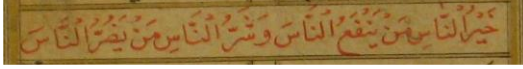 خَيْرُ النَّاسِ مَنْ يَنْفَعُ النَّاسَ وَشَرُّ النَّاسِ مَنْ يَضُرُّ النَّاسَ